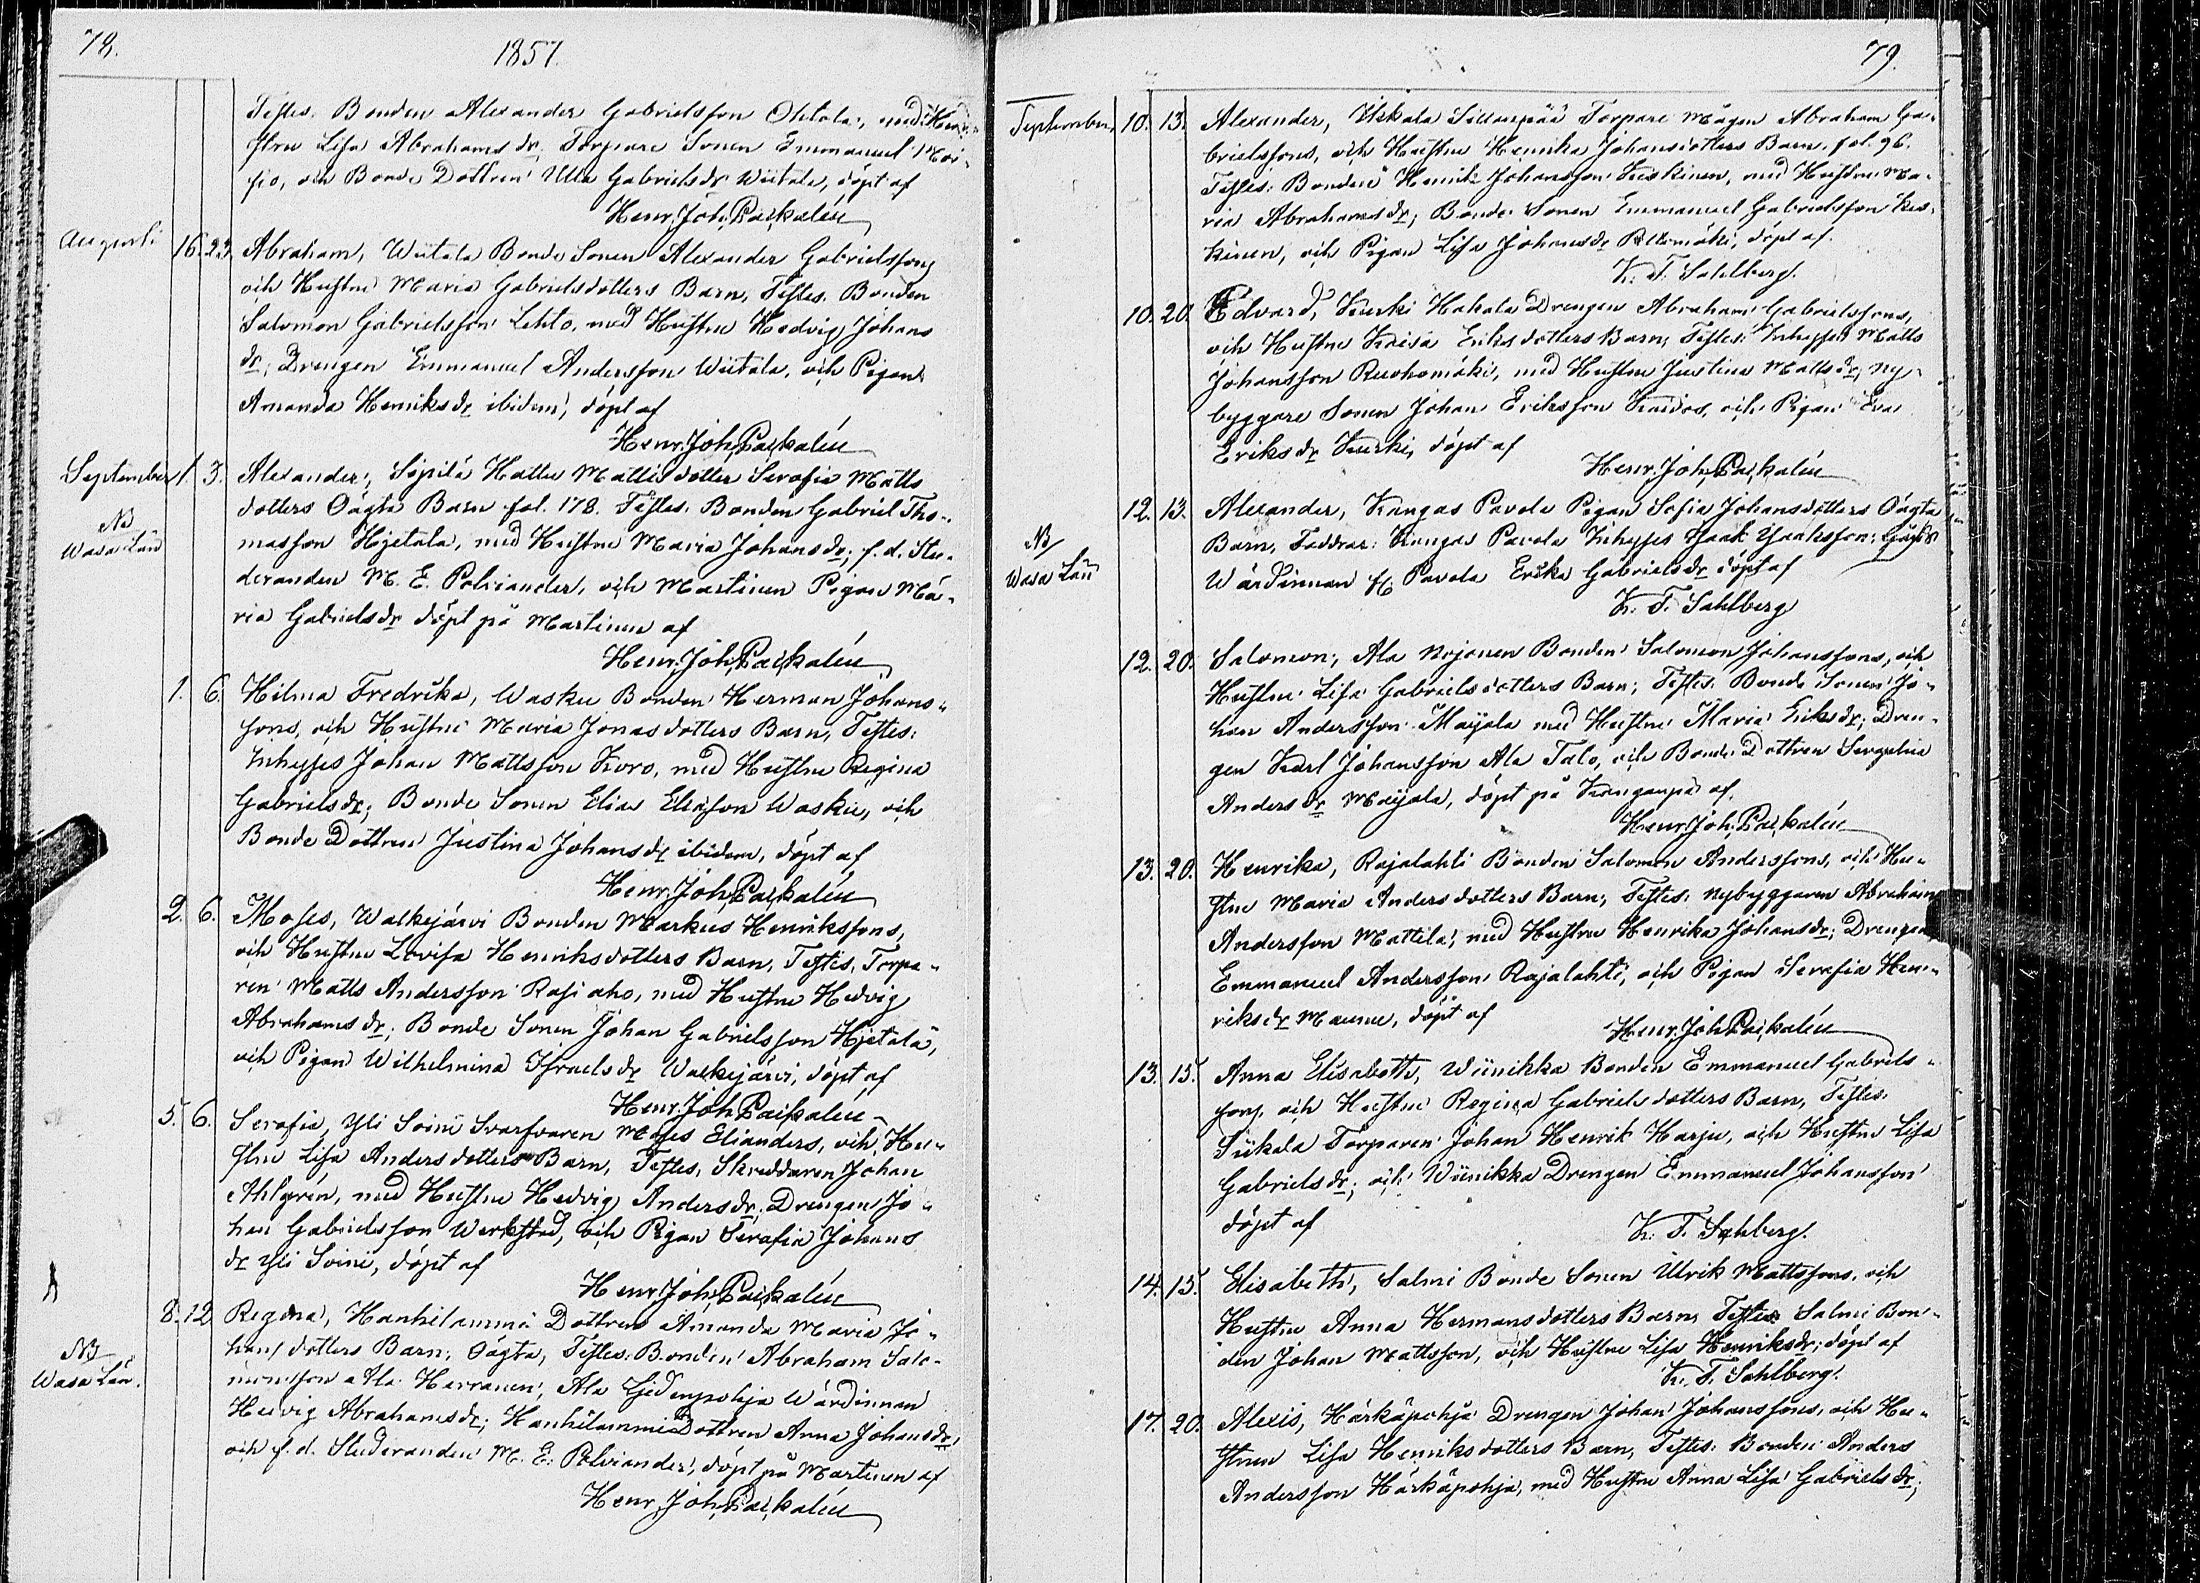 78.
1857.
Testes. Bonden Alexander Gabrielsson Ohtola, med Hu-
stru Lisa Abrahamsdr, Torpare Sonen Emmanuel Moi-
sio, och Bonde Dottren Ulla Gabrielsdr Wiitala, döpt af
Henr. Joh. Paikalén
Augusti 16. 23. Abraham, Wiitala Bonde Sonen Alexander Gabrielssons
och Hustrun Maria Gabrielsdotters Barn, Testes. Bonden
Salomon Gabrielsson Lehto, med Hustru Hedvig Johans
dr, Drengen Emmanuel Andersson Wiitala, och Pigan
Amanda Henriksdr ibidem, döpt af
Henr. Joh. Paikalén
September 1. 3. Alexander, Söpilä Hattu Mattis dotter Serafia Matts
dotters Oägta Barn fol. 178. Testes. Bonden Gabriel Tho-
masson Hjetala, med Hustru Maria Johansdr, f. d. Stu-
deranden M. E. Polviander, och Martinen Pigan Ma-
ria Gabrielsdr döpt på Martinen af
Henr. Joh. Paikalén
NB
Wasa Län
1. 6. Hilma Fredrika, Wasku Bonden Herman Johans-
sons, och Hustru Maria Jonasdotters Barn, Testes.
Inhyses Johan Mattsson Koro, med Hustru Regina
Gabrielsdr, Bonde Sonen Elias Eliasson Wasku, och
Bonde Dottren Justina Johansdr ibidem, döpt af
Henr. Joh. Paikalén
2. 6. Moses, Walkejärvi Bonden Markus Henrikssons,
och Hustru Lovisa Henriksdotters Barn, Testes. Torpa-
ren Matts Andersson Rasi aho, med Hustru Hedvig
Abrahamsdr, Bonde Sonen Johan Gabrielsson Hjetala,
och Pigan Wilhelmina Israelsdr Walkejärvi, döpt af
Henr. Joh. Paikalén
5. 6. Serafia, Yli Soini Svarfvaren Moses Elianders, och Hu-
stru Lisa Andersdotters Barn, Testes, Skreddaren Johan
Ahlgren, med Hustru Hedvig Andersdr, Drengen Jo-
han Gabrielsson Werkstad, och Pigan Serafia Johans
dr Yli Soini, döpt af
Henr. Joh. Paikalén
8. 12. Regina, Hanhilammi Dottren Amanda Maria Jo-
hansdotters Barn, Oägta, Testes. Bonden Abraham Salo-
monsson Ala Herranen, Ala Wärdinnan
Hedvig Abrahamsdr, Hanhilammi Dottren Anna Johansdr,
och f. d. Studeranden M. E. Polviander, döpt på Martinen af
Henr. Joh. Paikalén
NB
Wasa Län.
79.
September, 10. 13. Alexander, Uskala Sillanpää Torpare Mågen Abraham Ga-
brielssons, och Hustru Henrika Johansdotters Barn. fol. 96.
Testes. Bonden Henrik Johansson Keskinen, med Hustru Ma-
ria Abrahamsdr, Bonde Sonen Emmanuel Gabrielsson Kes-
kinen, och Pigan Lisa Johansdr döpt af.
K. F. Sahlberg.
10. 20. Edvard, Kurki Hakala Drengen Abraham Gabrielssons,
och Hustru Kaisa Eriksdotters Barn, Testes. Inhyses Matts
Johansson Ruohomäki, med Hustru Justina Mattsdr, Ny-
byggare Sonen Johan Eriksson och Pigan Eva
Eriksdr Kurki, döpt af
Henr. Joh. Paikalén
12. 13. Alexander, Kangas Pavola Pigan Sofia Johansdotters Oägta
Barn, Faddrar: Kangas Pavola Inhyses Isaak Isaksson,
Wärdinnan Pavola Erika Gabrielsdr döpt af
K. F. Sahlberg
NB
Wasa Län
12. 20. Salomon, Ala Nojonen Bonden Salomon Johanssons, och
Hustru Lisa Gabrielsdotters Barn; Testes. Bonde Sonen Jo-
han Andersson Mayala med Hustru Maria Eriksdr, Dren-
gen Karl Johansson Ala Talo, och Bonde Dottren Seraphia
Andersdr Mayala, döpt på Kanganpä af.
Henr. Joh. Paikalén
13. 20. Henrika, Rajalahti Bonden Salomon Anderssons, och Hu-
stru Maria Andersdotters Barn, Testes. Nybyggaren Abraham
Andersson Mattila, med Hustru Henrika Johansdr, Drengen
Emmanuel Andersson Rajalahti, och Pigan Serafia Hen-
riksdr Maunu, döpt af
Henr. Joh. Paikalén
13. 15. Anna Elisabeth, Wiinikka Bonden Emmanuel Gabriels-
sons, och Hustru Regina Gabrielsdotters Barn, Testes.
Siikala Torparen Johan Henrik Harju, och Hustru Lisa
Gabrielsdr, och Wiinikka Drengen Emmanuel Johansson
döpt af
K. F. Sahlberg.
14. 15. Elisabeth, Salmi Bonde Sonen Ulrik Mattssons, och
Hustru Anna Hermansdotters Barn, Testes Salmi Bon-
den Johan Mattsson, och Hustru Lisa Henriksdr, döpt af
K. F. Sahlberg.
17. 20. Alexis, Härkäpohja Drengen Johan Johanssons, och Hu-
strun Lisa Henriksdotters Barn, Testes. Bonden Anders
Andersson Härkäpohja, med Hustru Anna Lisa Gabrielsdr,